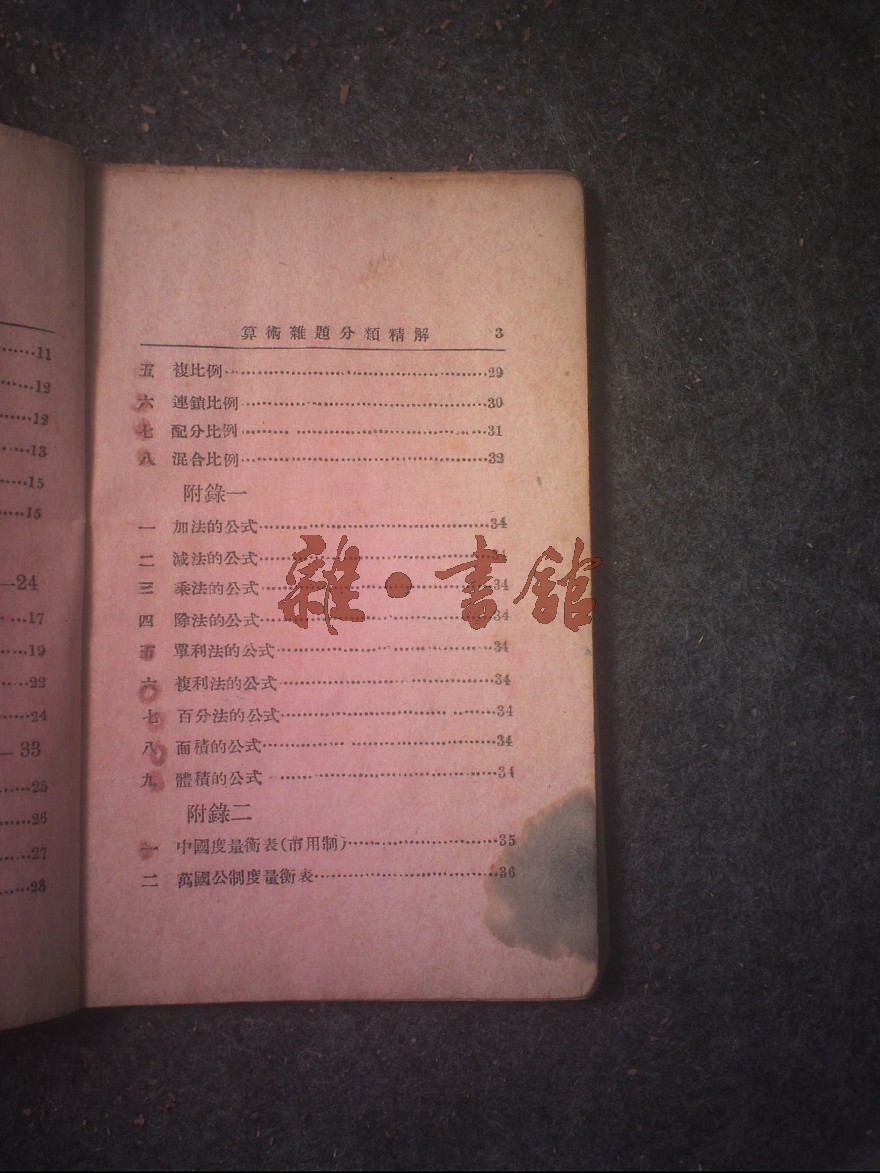 …11
…12
…12
…13
…15
…15
—24
…17
…19
…22
…24
—33
…25
…26
…27
…28
算術雜題分類精解 3
五 複比例…29
六 連鎖比例…30
七 配分比例…31
八 混合比例…32
附錄一
一 加法的公式…34
二 減法的公式…34
三 乘法的公式…34
四 除法的公式…34
五 單利法的公式…34
六 複利法的公式…34
七 百分法的公式…34
八 面積的公式…34
九 體積的公式…34
附錄二
一 中國度量衡表(市用制)…35
二 萬國公制度量衡表…36
雜•書館